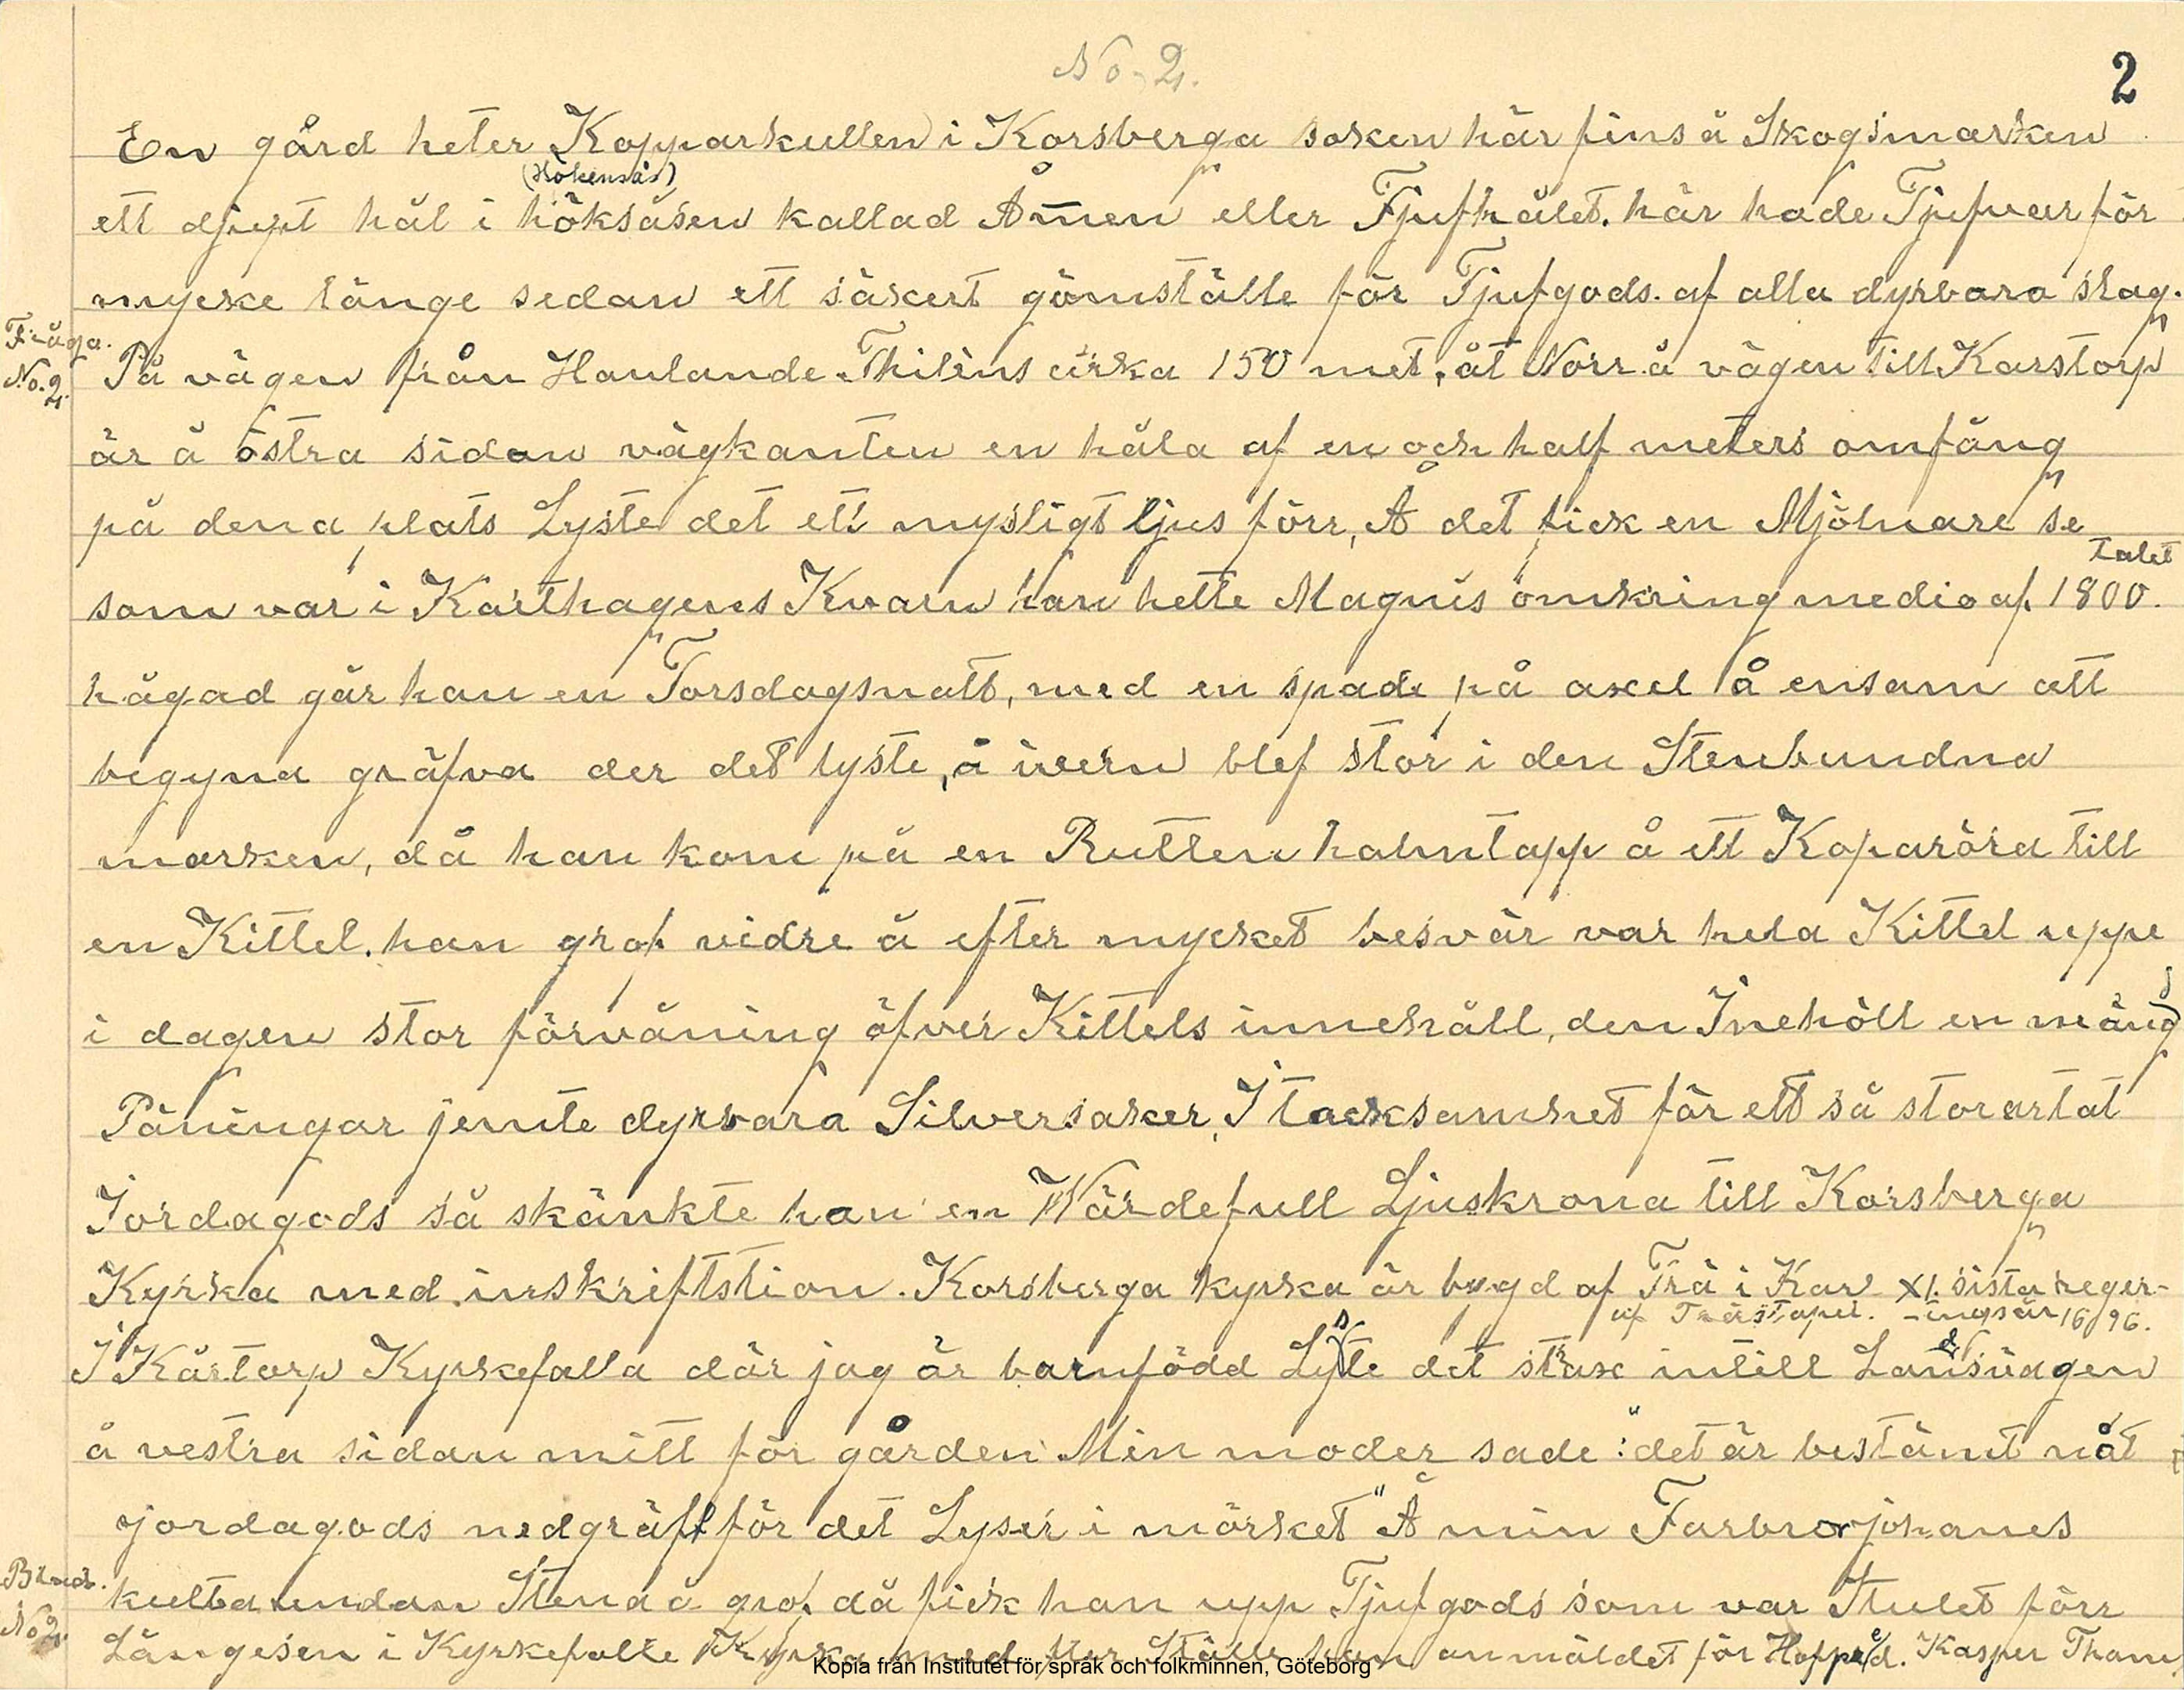 No. 2.
2
En gård heter Kopparkullen i Korsberga socken här fins å Skogsmarken
(Hökensås)
ett djupt hål i höksåsen kallad Åmen eller Tjufhålet. här hade Tjufvar för
mycke länge sedan ett säkert gömställe för Tjufgods. af alla dyrbara slag.
Fråga.
No. 2.
På vägen från Hanlande. Thiléns cirka 150 met, åt Norr å vägen till Karstorp
är å östra sidan vägkanten en håla af en och half meters omfång
på dena plats Lyste det ett mysligt ljus förr, Å det fick en Mjölnare se
talet
som var i Karthagens Kvarn han hette Magnus omkring medio af. 1800.
hågad går han en Torsdagsnatt, med en spade på axel å ensam att
begyna gräfva der det lyste, å ivern blef stor i den Stenbundna
marken, då han kom på en Rutten halmtapp å ett Koparöra till
en Kittel. han grof vidre å efter mycket besvär var hela Kittel uppe
i dagen stor förvåning öfver Kittels innehåll, den Inehöll en mäng
Päningar jemte dyrbara Silversaker, I tacksamhet för ett så storartat
Jordagods så skänkte han en Wärdefull Ljuskrona till Korsberga
Kyrka med inskriftstion. Korsberga kyrka är bygd af Trä i Karl XI. sista reger-
af Trästapel. -ingsår 1696.
I Kårtorp Kyrkefalla där jag är barnfödd Lyste det strax intill Landsvägen
å vestra sidan mitt för gården Min moder sade: "det är bestämt nåt
jordagods nedgräft för det Lyser i mörket" Å min Farbror johanes
No 2.
kulta undan Stena å grof då fick han upp Tjufgods som var Stulet förr
Längesen i Kyrkefalle Kyrka med fler Ställe han anmäldet för Kasper Tham
Kopia från Institutet för språk och folkminnen, Göteborg